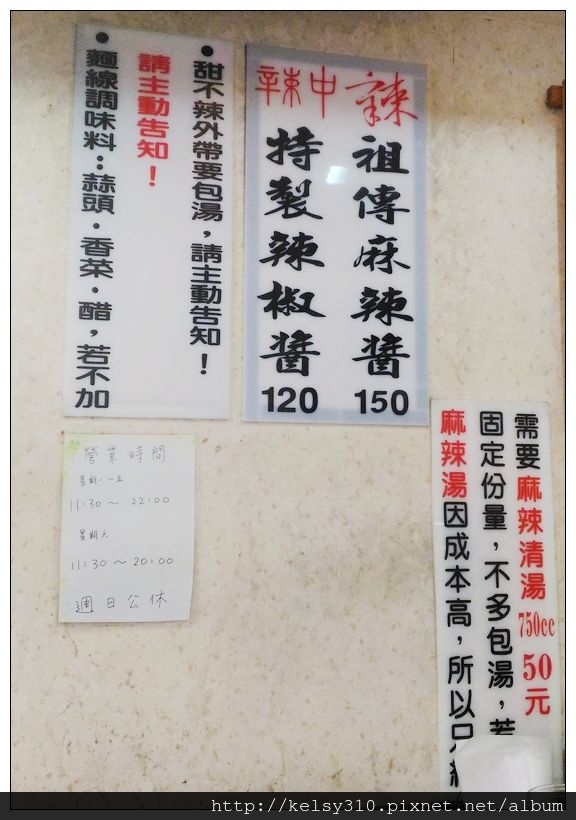 ●甜不辣外帶要包湯，請主動告知！
●麵線調味料：蒜頭．香菜．醋，若不加
請主動告知！
辣
祖傳麻辣醬
150
中辣
特製辣椒醬
120
營業時間
星期一~五
11:30～22:00
星期六
11:30～20:00
週日公休
需要麻辣清湯750cc 50元
固定份量，不多包湯，若
麻辣湯因成本高，所以只
http://kelsy310.pixnet.net/album